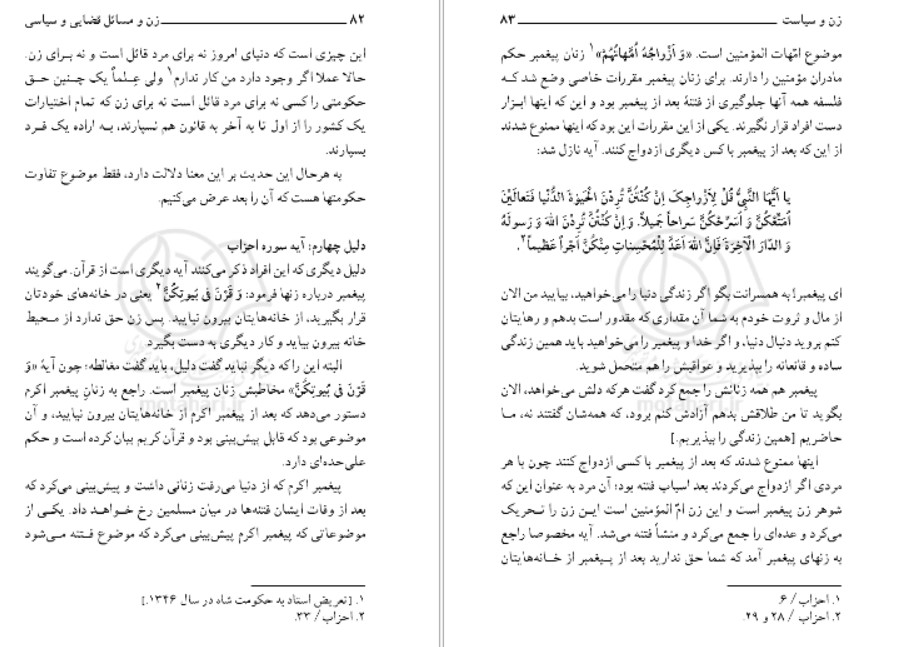 ۸۲ زن و مسائل قضایی و سیاسی
این چیزی است که دنیای امروز نه برای مرد قائل است و نه برای زن.
حالا عملا اگر وجود دارد من کار ندارم۱ ولی عِلماً یک چنین حق
حکومتی را کسی نه برای مرد قائل است نه برای زن که تمام اختیارات
یک کشور را از اول تا به آخر به قانون هم نسپارند، به اراده یک فرد
بسپارند.
به هرحال این حدیث بر این معنا دلالت دارد، فقط موضوع تفاوت
حکومتها هست که آن را بعد عرض می‌کنیم.
دلیل چهارم: آیه سوره احزاب
دلیل دیگری که این افراد ذکر می‌کنند آیه دیگری است از قرآن. می‌گویند
پیغمبر درباره زنها فرمود: وَ قَرْنَ فی بُیوتِکُنَّ۲ یعنی در خانه‌های خودتان
قرار بگیرید، از خانه‌هایتان بیرون نیایید. پس زن حق ندارد از محیط
خانه بیرون بیاید و کار دیگری به دست بگیرد.
البته این را که دیگر نباید گفت دلیل، باید گفت مغالطه؛ چون آیهٔ «وَ
قَرْنَ فی بُیوتِکُنَّ» مخاطبش زنان پیغمبر است. راجع به زنانِ پیغمبر اکرم
دستور می‌دهد که بعد از پیغمبر اکرم از خانه‌هایتان بیرون نیایید، و آن
موضوعی بود که قابل پیش‌بینی بود و قرآن کریم بیان کرده است و حکم
علی‌حده‌ای دارد.
پیغمبر اکرم که از دنیا می‌رفت زنانی داشت و پیش‌بینی می‌کرد که
بعد از وفات ایشان فتنه‌ها در میان مسلمین رخ خواهد داد. یکی از
موضوعاتی که پیغمبر اکرم پیش‌بینی می‌کرد که موضوع فتنه می‌شود
۱. [تعریض استاد به حکومت شاه در سال ۱۳۴۶.]
۲. احزاب / ۳۳.
زن و سیاست ۸۳
موضوع امّهات المؤمنین است. «وَ اَزْواجُهُ اُمَّهاتُهُمْ»۱ زنان پیغمبر حکم
مادران مؤمنین را دارند. برای زنان پیغمبر مقررات خاصی وضع شد که
فلسفه همه آنها جلوگیری از فتنهٔ بعد از پیغمبر بود و این که اینها ابزار
دست افراد قرار نگیرند. یکی از این مقررات این بود که اینها ممنوع شدند
از این که بعد از پیغمبر با کس دیگری ازدواج کنند. آیه نازل شد:
یا اَیُّهَا النَّبِیُّ قُلْ لِاَزْواجِکَ اِنْ کُنْتُنَّ تُرِدْنَ الْحَیوةَ الدُّنْیا فَتَعالَیْنَ
اُمَتِّعْکُنَّ وَ اُسَرِّحْکُنَّ سَراحاً جَمیلاً. وَ اِنْ کُنْتُنَّ تُرِدْنَ اللهَ وَ رَسولَهُ
وَ الدّارَ الْآخِرَةَ فَاِنَّ اللهَ اَعَدَّ لِلْمُحْسِناتِ مِنْکُنَّ اَجْراً عَظیماً۲.
ای پیغمبر! به همسرانت بگو اگر زندگی دنیا را می‌خواهید، بیایید من الان
از مال و ثروت خودم به شما آن مقداری که مقدور است بدهم و رهایتان
کنم بروید دنبال دنیا، و اگر خدا و پیغمبر را می‌خواهید باید همین زندگی
ساده و قانعانه را بپذیرید و عواقبش را هم متحمل شوید.
پیغمبر هم همه زنانش را جمع کرد گفت هرکه دلش می‌خواهد، الان
بگوید تا من طلاقش بدهم آزادش کنم برود، که همه‌شان گفتند نه، ما
حاضریم [همین زندگی را بپذیریم.]
اینها ممنوع شدند که بعد از پیغمبر با کسی ازدواج کنند چون با هر
مردی اگر ازدواج می‌کردند بعد اسباب فتنه بود؛ آن مرد به عنوان این که
شوهر زن پیغمبر است و این زن امّ المؤمنین است این زن را تحریک
می‌کرد و عده‌ای را جمع می‌کرد و منشأ فتنه می‌شد. آیه مخصوصا راجع
به زنهای پیغمبر آمد که شما حق ندارید بعد از پیغمبر از خانه‌هایتان
۱. احزاب / ۶.
۲. احزاب / ۲۸ و ۲۹.
motahari.ir
motahari.ir